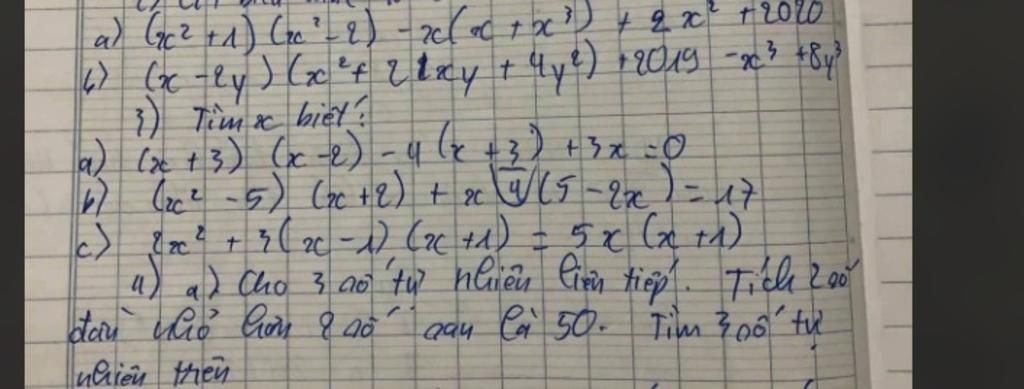 a) (x² + 1) (x² - 2) - x(x + x³) + 2x² + 2020
b) (x - 2y) (x² + 2xy + 4y²) + 2019 - x³ + 8y³
3) Tìm x biết:
a) (x + 3) (x - 2) - 4(x + 3/4) + 3x = 0
b) (x² - 5) (x + 2) + x (5 - 2x) = 17
c) 2x² + 3(x - 1) (x + 1) = 5x (x + 1)
4) a) Cho 3 số tự nhiên liên tiếp. Tích 2 số
đầu nhỏ hơn 2 số sau là 50. Tìm 3 số tự
nhiên trên